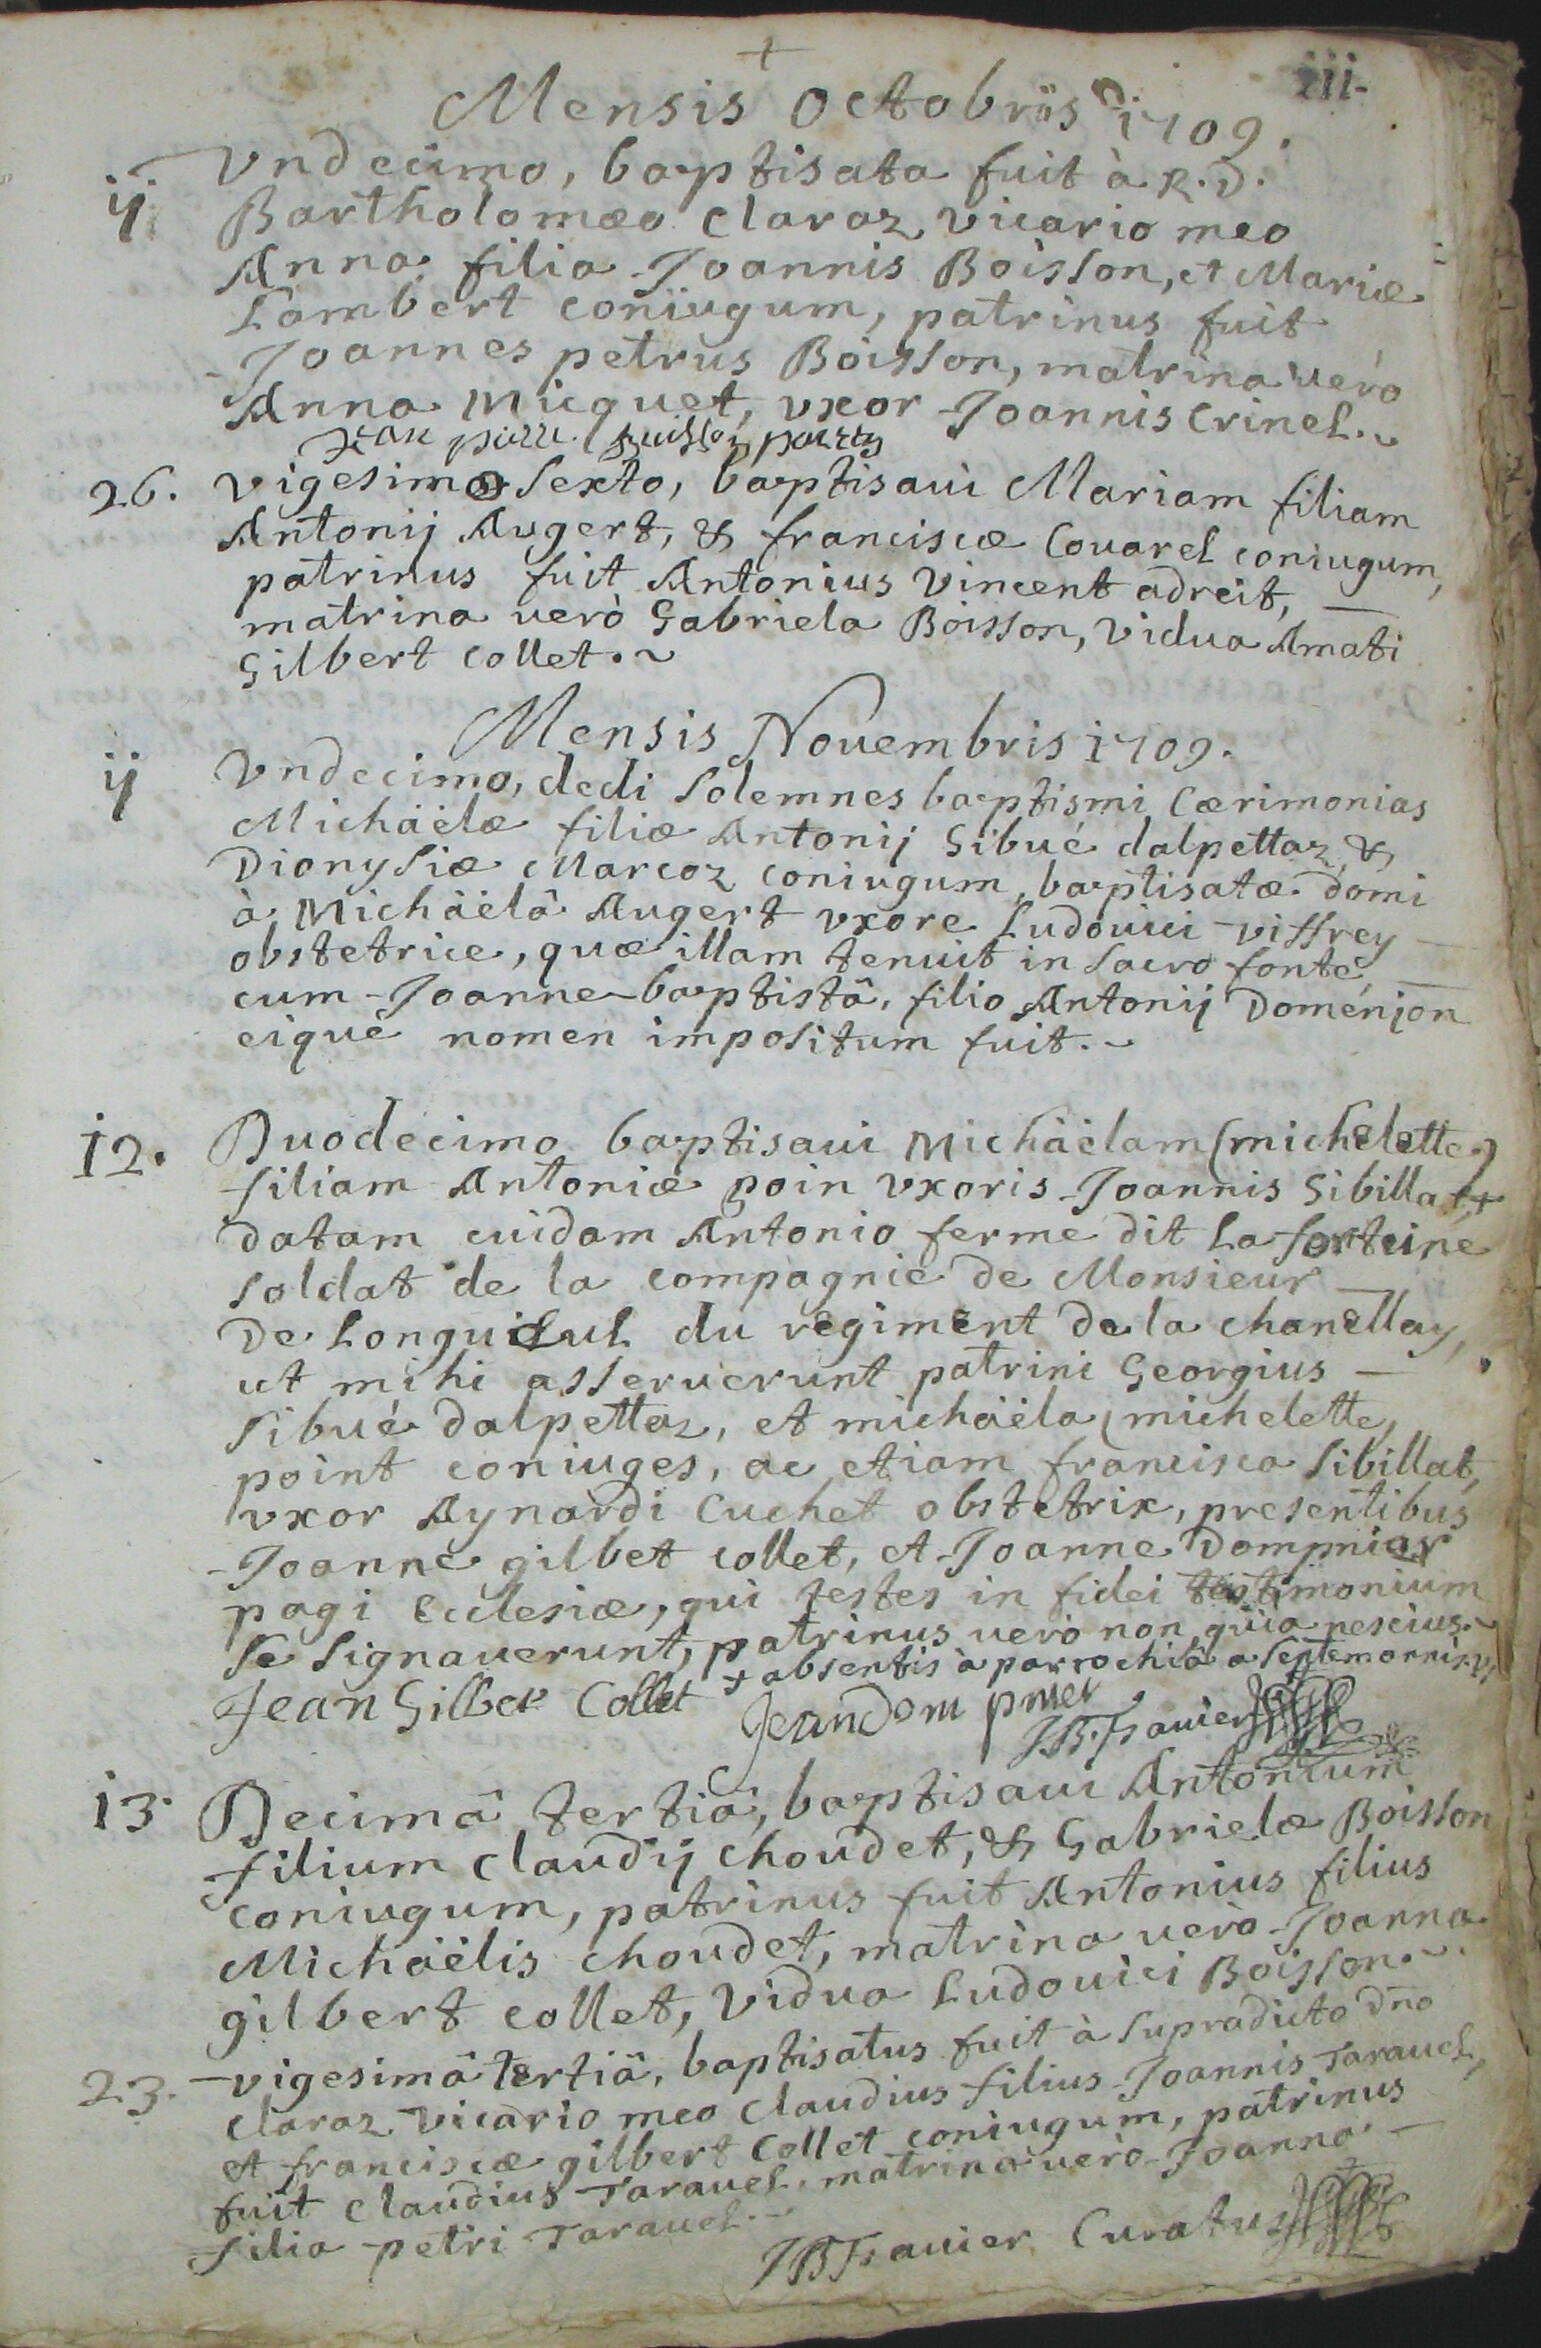 +
iii.
Mensis Octobris 1709.
ij Vndecimo, baptisata fuit à R. D.
Bartholomæo Claraz vicario meo
Anna filia Joannis Boisson, et Mariæ
Lambert coniugum, patrinus fuit
Joannes petrus Boisson, matrina verò
Anna Micquet, vxor Joannis Crinel.
Jean pierre
26. Vigesimo Sexto, baptisaui Mariam filiam
Antonij Augert, & franciscæ Couarel coniugum,
patrinus fuit Antonius Vincent adreit,
matrina verò Gabriela Boisson, vidua Amati
Gilbert Collet.
Mensis Nouembris 1709.
ij Vndecimo, dedi Solemnes baptismi Cærimonias
Michäelæ filiæ Antonij Sibué dalpettaz &
Dionysiæ Marcoz coniugum, baptisatæ domi
à Michäelâ Augert vxore Ludouici viffrey
obstetrice, quæ illam tenuit in Sacro fonte
cum Joanne baptistâ, filio Antonij Doménjon
eique nomen impositum fuit.
12. Duodecimo baptisaui Michäelam (michelette)
filiam Antoniæ poin vxoris Joannis Sibillat +
datam cuidam Antonio ferme dit La
soldat de la compagnie de Monsieur
De du regiment de la chanellay,
ut mihi asseruerunt patrini Georgius
Sibué dalpettaz, et michäela (michelette)
point coniuges, ac etiam francisca Sibillat,
vxor Aynardi Cuchet obstetrix, presentibus
Joanne gilbet collet, et Joanne Dompnier
pagi Ecclesiæ, qui testes in fidei testimonium
Se Signauerunt, patrinus verò non quia nescius.
+ absentis à parrochiâ a Septem annis
Jean Gilbet Collet Jean Dom pnier JB. Frauier
13. Decimâ tertiâ, baptisaui Antonium
filium Claudij Choudet, & Gabrielæ Boisson
coniugum, patrinus fuit Antonius filius
Michäëlis Choudet, matrina verò Joanna
gilbert collet, vidua Ludouici Boisson.
23. vigesimâ tertiâ, baptisatus fuit à Supradicto dno
Claraz vicario meo Claudius filius Joannis Tarauel,
et franciscæ gilbert Collet coniugum, patrinus
fuit Claudius Tarauel, matrina verò Joanna
filia petri Tarauel.
JB Frauier Curatus